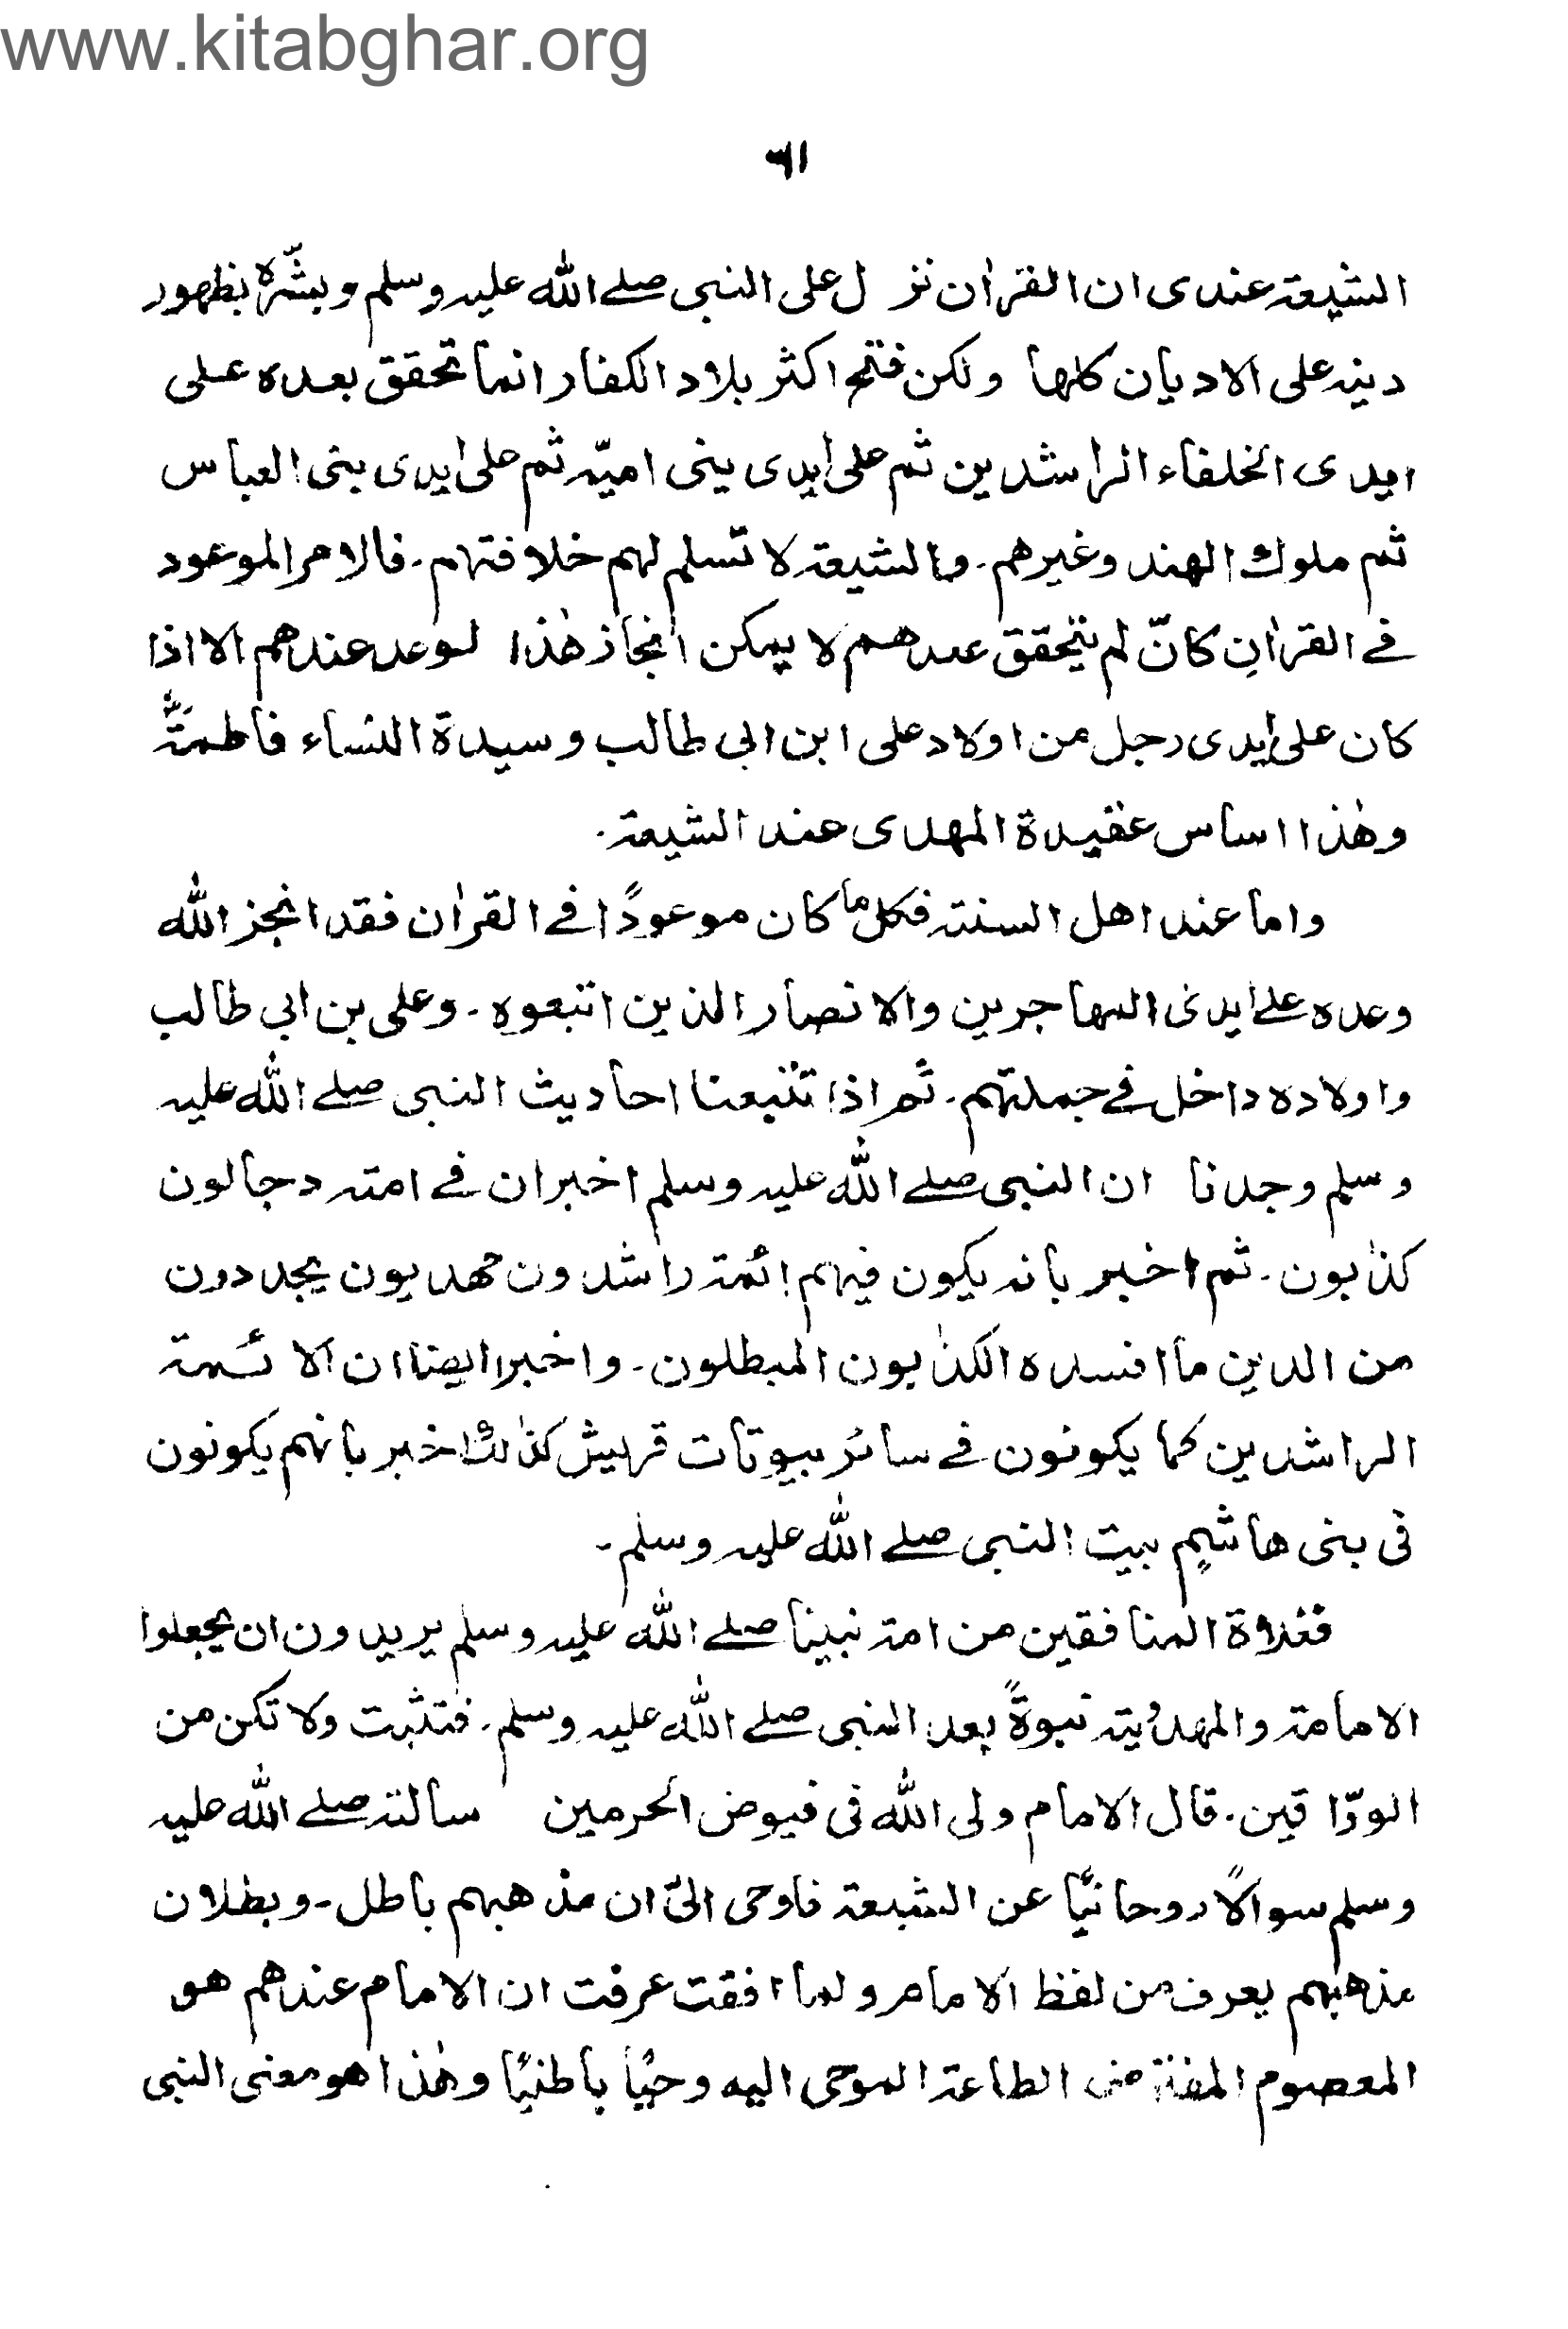 www.kitabghar.org
٣١
الشیعۃ عندی ان القراٰن نزل علی النبی صلے اللہ علیہ وسلم وبشّرہٗ بظھور
دینہ علی الادیان کلھا ولکن فتح اکثر بلاد الکفار انما تحقق بعدہ علی
ایدی الخلفاء الراشدین ثم علی ایدی بنی امیّہ ثم علی ایدی بنی العباس
ثم ملوک الھند وغیرھم۔ والشیعۃ لا تسلم لھم خلافتھم۔ فالامر الموعود
فے القراٰنِ کانّ لم یتحقق عندھم لا یمکن انجاز ھٰذا لوعد عندھم الا اذا
کان علی ایدی رجل من اولاد علی ابن ابی طالب وسیدۃ النساء فاطمۃؓ
وھٰذا اساس عقیدۃ المھدی عند الشیعۃ۔
واما عند اھل السنۃ فکل ما کان موعودًا فے القراٰن فقد انجز اللہ
وعدہ علے ایدی المھاجرین والانصار الذین اتبعوہ۔ وعلی بن ابی طالب
واولادہ داخل فے جملتھم۔ ثم اذا تتبعنا احادیث النبی صلے اللہ علیہ
وسلم وجدنا ان النبی صلے اللہ علیہ وسلم اخبر ان فے امتہ دجالون
کذٰبون۔ ثم اخبر بانہ یکون فیھم ائمۃ راشدون مھدیون یجددون
من الدین ما افسدہ الکذٰبون المبطلون۔ واخبر ایضا ان الائمۃ
الراشدین کما یکونون فے سائر بیوتات قریش کذٰلک اخبر بانھم یکونون
فی بنی ھاشمٍ بیت النبی صلے اللہ علیہ وسلم۔
فغلاۃ المنافقین من امۃ نبینا صلے اللہ علیہ وسلم یریدون ان یجعلوا
الامامۃ والمھدویۃ نبوۃً بعد النبی صلے اللہ علیہ وسلم۔ فتثبت ولا تکن من
الورّاقین۔ قال الامام ولی اللہ فی فیوض الحرمین سالتہ صلے اللہ علیہ
وسلم سوالًا روحانیًّا عن الشیعۃ فاوحی الیّ ان مذھبھم باطل۔ وبطلان
مذھبھم یعرف من لفظ الامام ولما افقت عرفت ان الامام عندھم ھو
المعصوم المفترض الطاعۃ الموحی الیہ وحیًا باطنیًا وھٰذا ھو معنی النبی